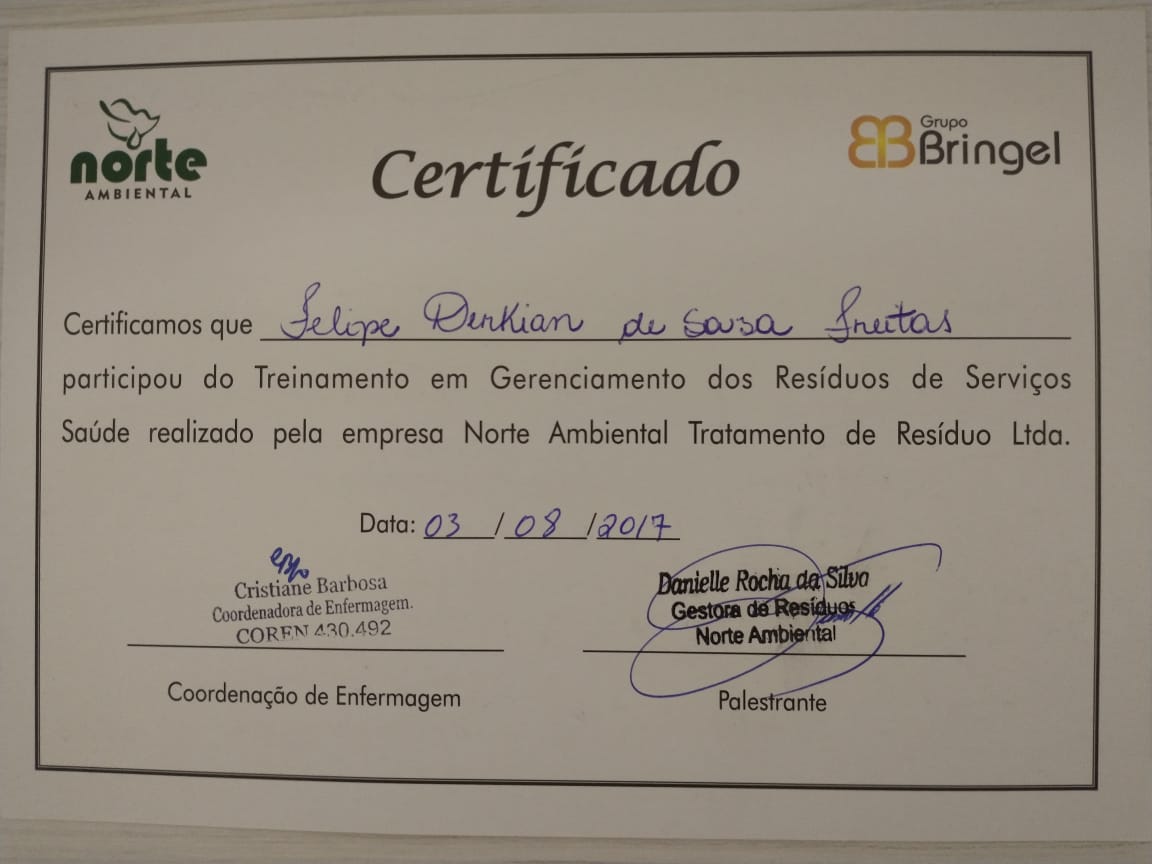 norte
AMBIENTAL
Certificado
Grupo
Bringel
Certificamos que Felipe Derkian de Sousa Freitas
participou do Treinamento em Gerenciamento dos Resíduos de Serviços
Saúde realizado pela empresa Norte Ambiental Tratamento de Resíduo Ltda.
Data: 03 / 08 / 2017
Cristiane Barbosa
Coordenadora de Enfermagem.
COREN 430.492
Coordenação de Enfermagem
Danielle Rocha da Silva
Gestora de Resíduos
Norte Ambiental
Palestrante